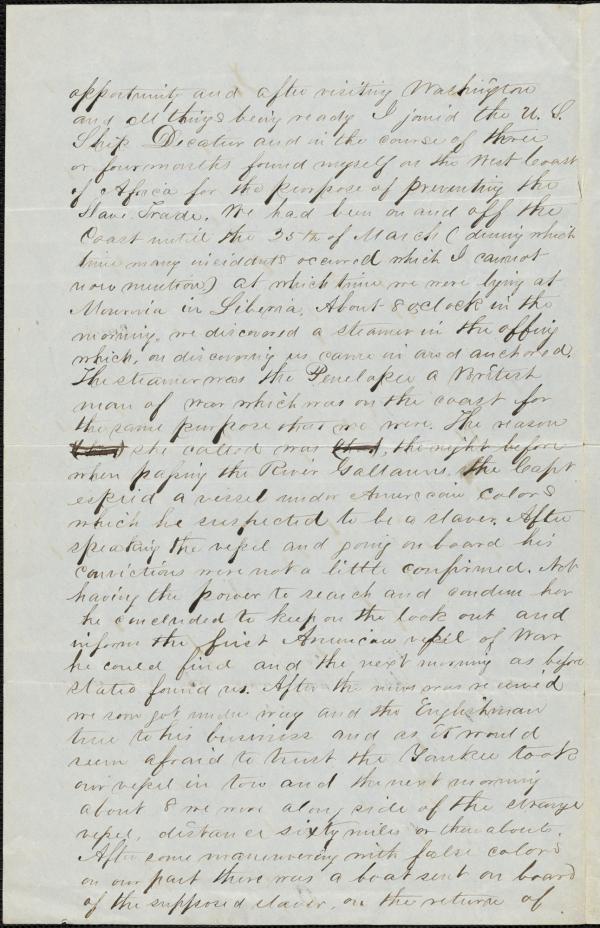 opportunity and after visiting Washington
and all things being ready I joined the U. S.
Ship Decatur and in the course of three
or four months found myself on the West Coast
of Africa for the purpose of preventing the
Slave Trade. We had been on and off the
Coast until the 25th of March (during which
time many incidents occured which I cannot
now mention) at which time we were lying at
Monrovia in Liberia. About 8 oclock in the
morning, we discovered a steamer in the offing
which, on discovering us came in and anchored.
The steamer was the Penelope a British
man of war which was on the coast for
the same purpose that we were. The reason
she called was, the night before
when passing the River Gallinas, the Capt
espied a vessel under American colors
which he suspected to be a slaver. After
speaking the vessel and going on board his
convictions were not a little confirmed. Not
having the power to search and condem her
he concluded to keep on the look out and
inform the first American vessel of War
he could find and the next morning as before
stated found us. After the news was received
we soon got under way and the Englishman
true to his business and as it would
seem afraid to trust the Yankee took
our vessel in tow and the next morning
about 8 we were along side of the strange
vessel, distance sixty miles or thereabouts.
After some maneuvering with false colors
on our part there was a boat sent on board
of the supposed slaver, on the return of